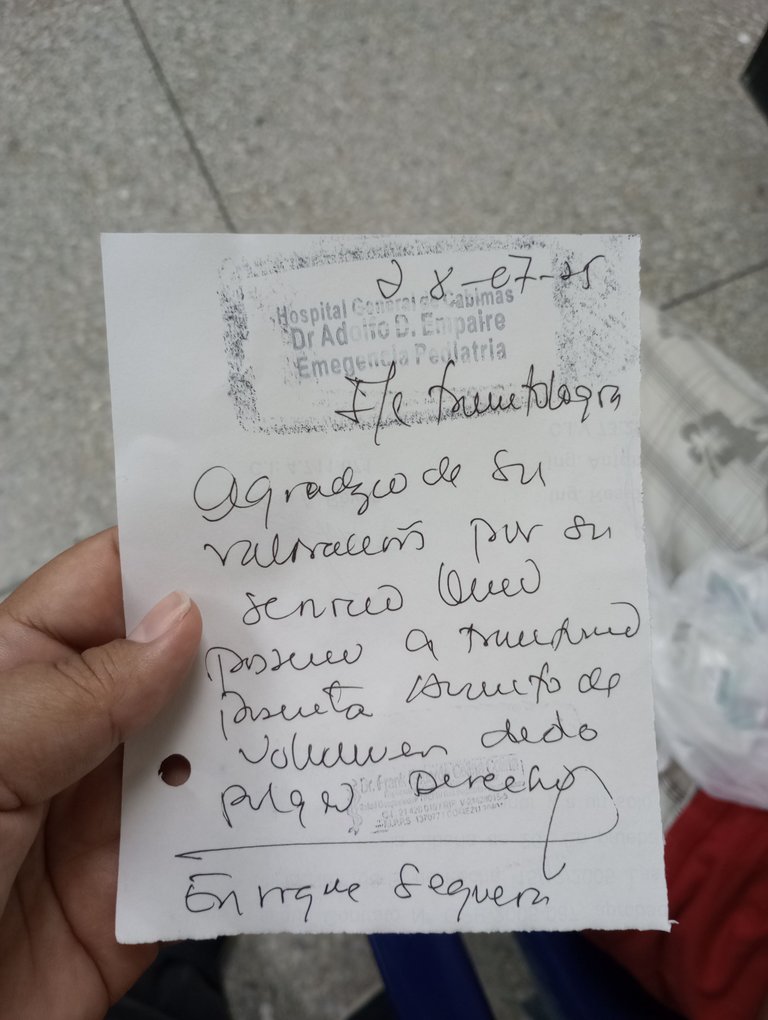 28-07-25
Hospital General de Cabimas
Dr Adolfo D. Empaire
Emegencia Pediatria
I/c traumatologia
Agradezco de su
valoración por su
servicio
posterior a traumatismo
presenta aumento de
volumen dedo
pulgar Derecho
Enrique Sequera